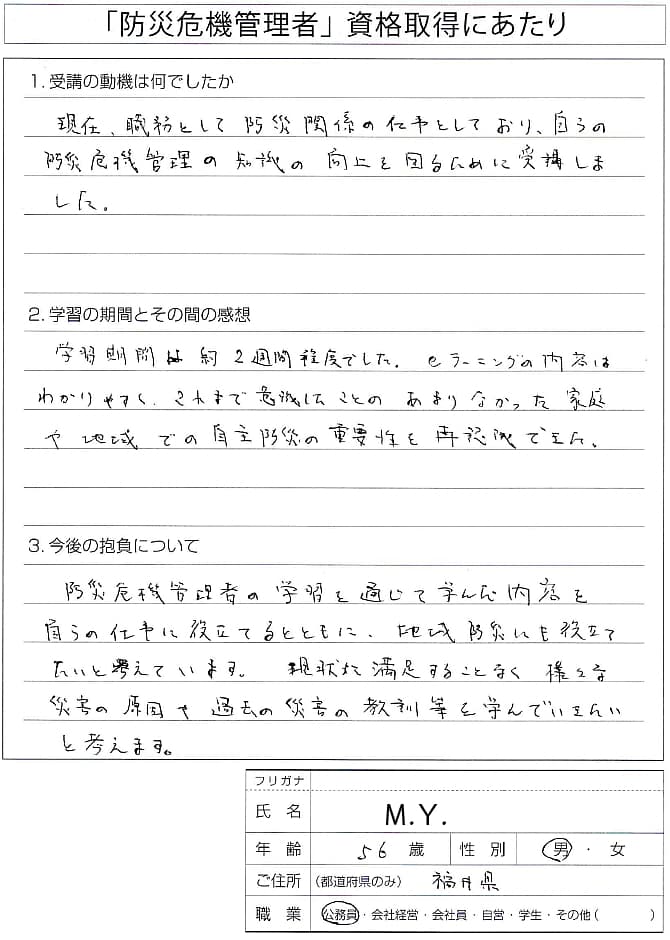 「防災危機管理者」資格取得にあたり
1. 受講の動機は何でしたか
現在、職務として防災関係の仕事としており、自らの
防災危機管理の知識の向上を図るために受講しま
した。
2. 学習の期間とその間の感想
学習期間は約2週間程度でした。eラーニングの内容は
わかりやすく、これまで意識したことのあまりなかった家庭
や地域での自主防災の重要性を再認識できた。
3. 今後の抱負について
防災危機管理者の学習を通じて学んだ内容を
自らの仕事に役立てるとともに、地域防災にも役立て
たいと考えています。現状に満足することなく様々な
災害の原因や過去の災害の教訓等を学んでいきたい
と考えます。
フリガナ
氏名 M.Y.
年齢 56歳 性別 男・女
ご住所 (都道府県のみ) 福井県
職業 公務員・会社経営・会社員・自営・学生・その他( )